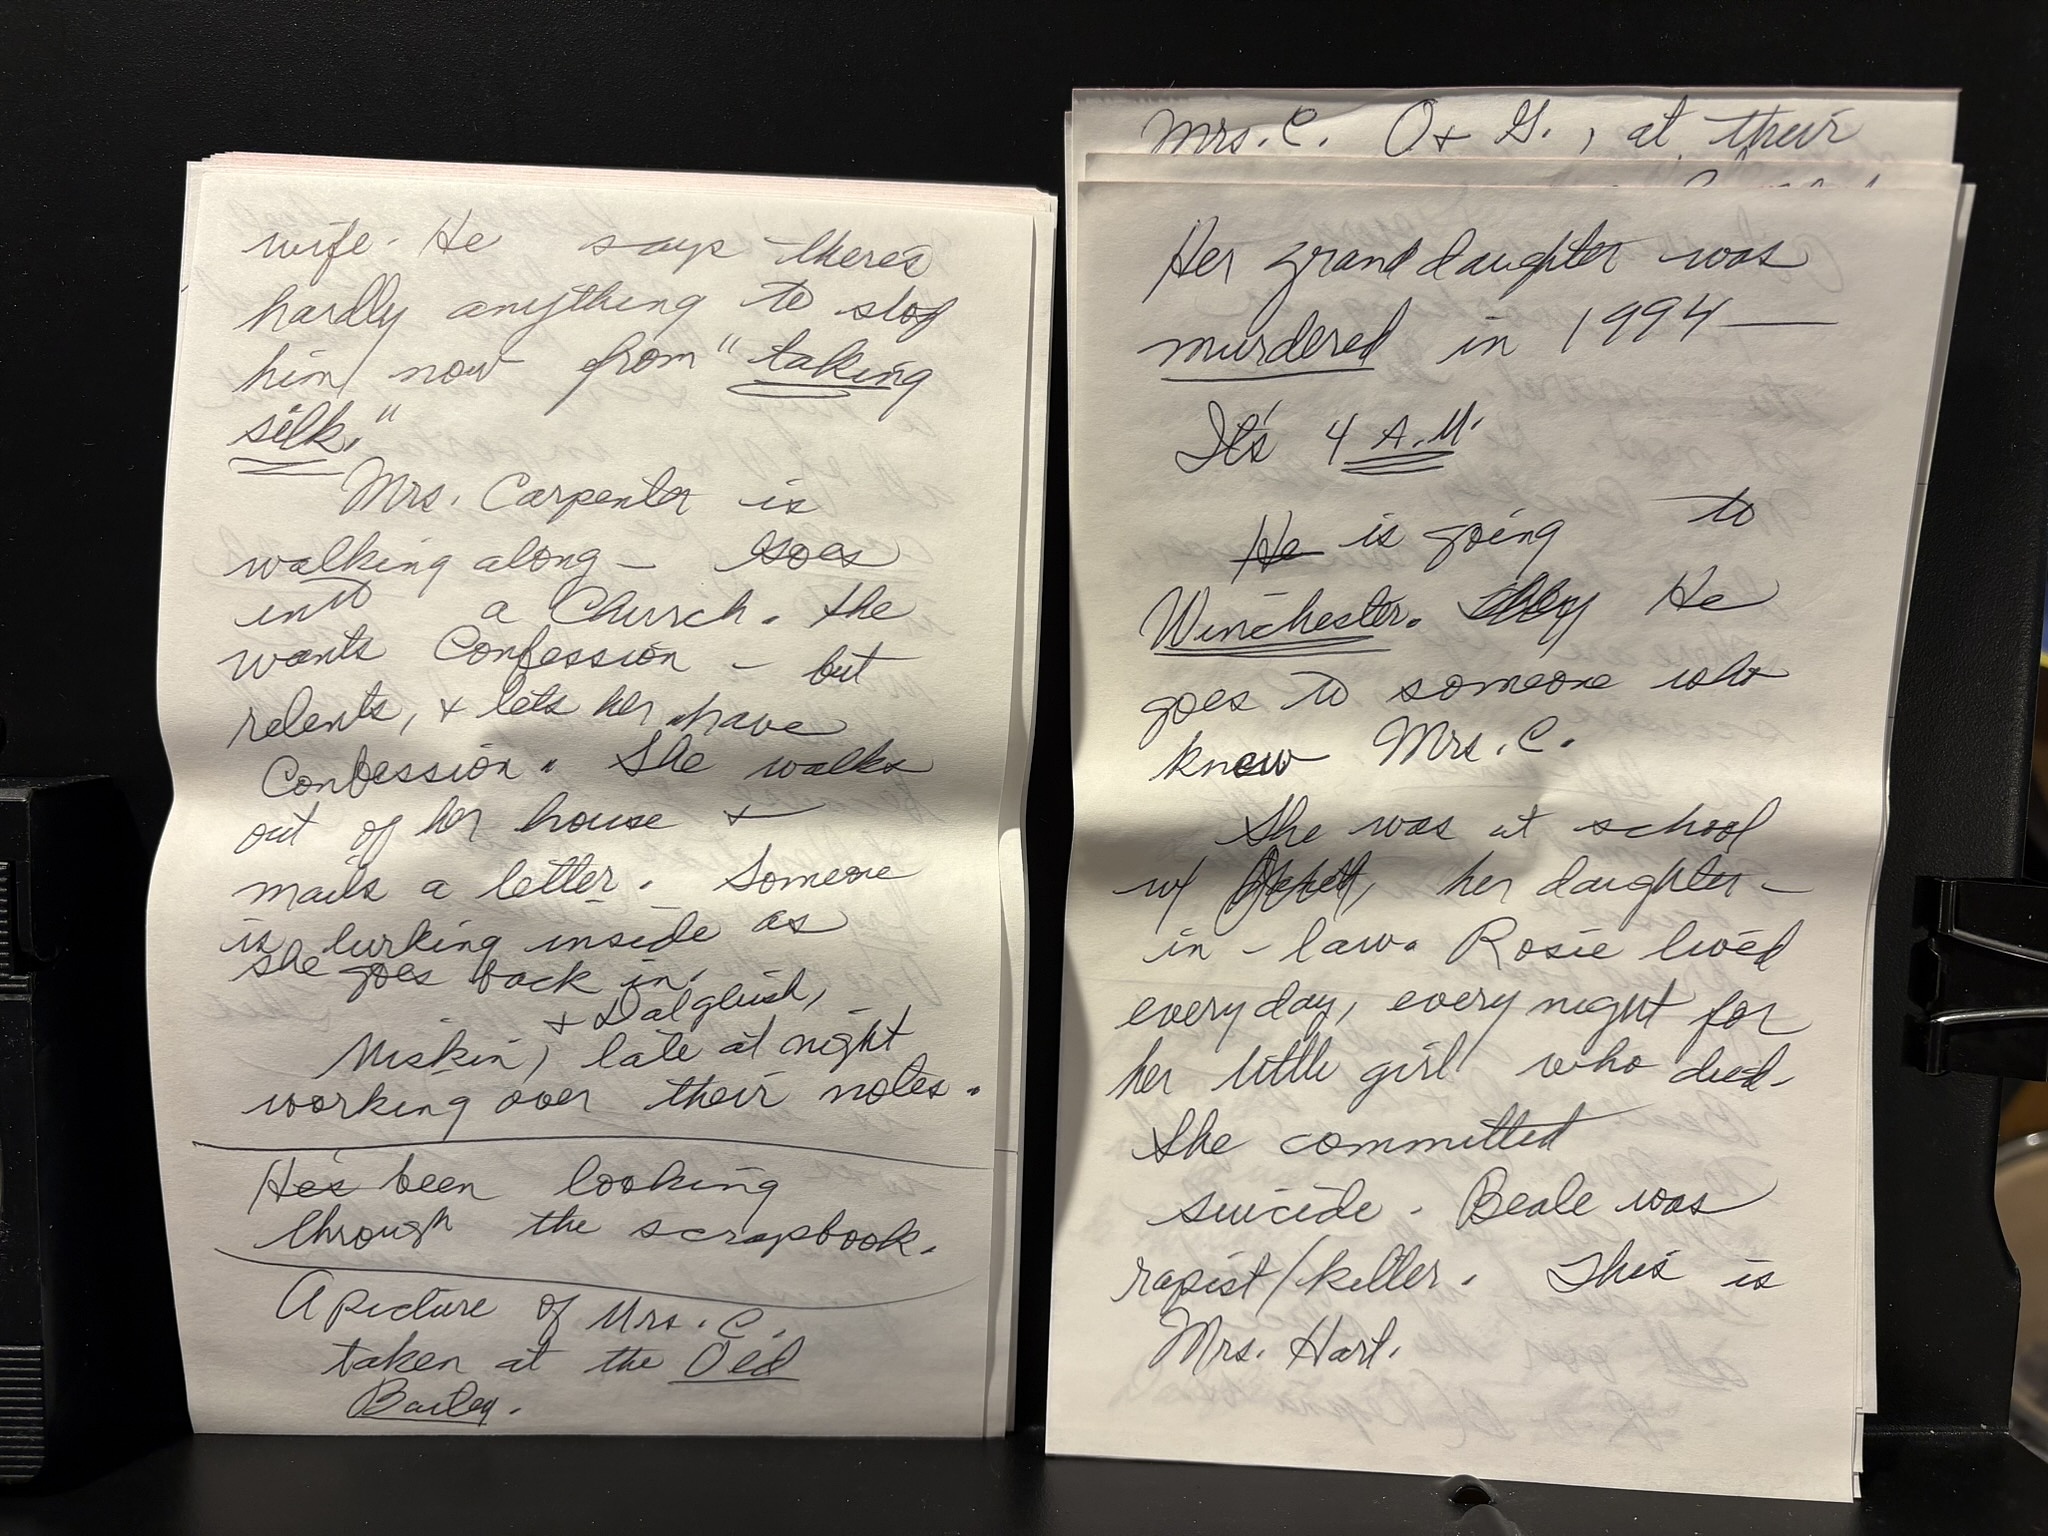 wife. He says there's
hardly anything to stop
him now from "taking
silk."
Mrs. Carpenter is
walking along - Goes
into a Church. She
wants Confession - but
relents, & lets her have
Confession. She walks
out of her house &
mails a letter. Someone
is lurking inside as
she goes back in.
& Dalgliesh,
Miskin, late at night
working over their notes.
He's been looking
through the scrapbook.
A picture of Mrs. C.
taken at the Old
Bailey.
Mrs. C. O & G., at their
Her granddaughter was
murdered in 1994 —
It's 4 A.M.
He is going to
Winchester. He
goes to someone who
knew Mrs. C.
She was at school
w/ her daughter -
in - law. Rosie lived
every day, every night for
her little girl who died.
She committed
suicide. Beale was
rapist/killer. This is
Mrs. Hart.